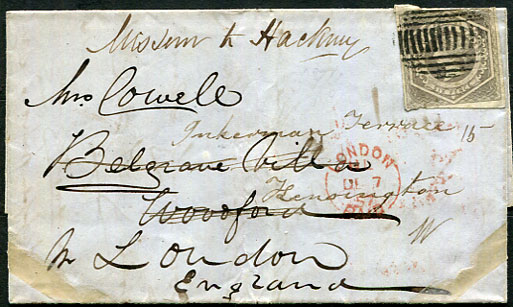 Missent to Hackney
Mrs Cowell
Inkerman Terrace
15
Belgrave Villa
Kensington
Woodford
W
London
England
LONDON
7
57